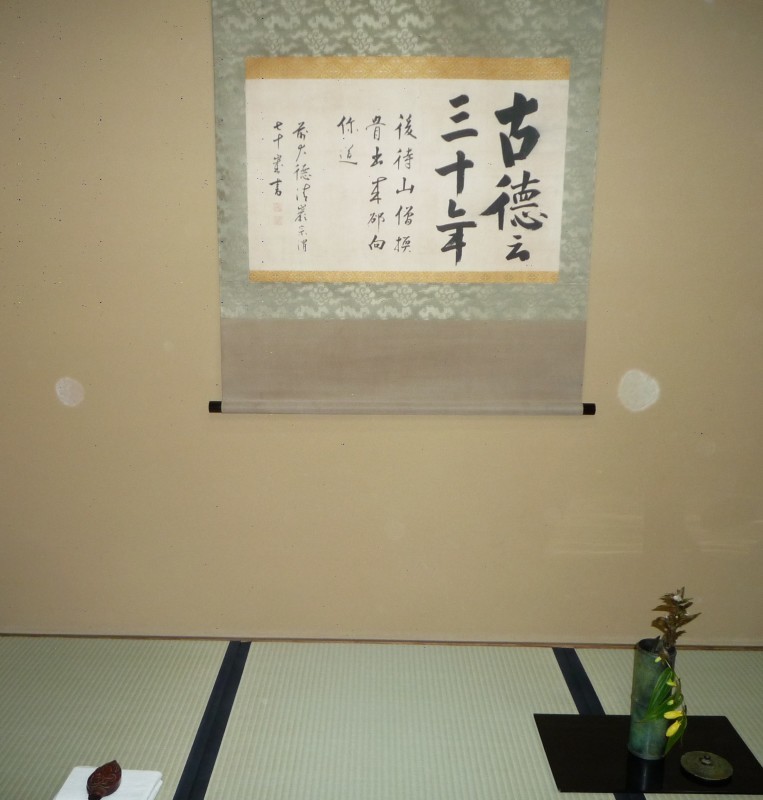 古德云
三十年
後待山僧換
骨出来卻向
你道
前大德清巌宗渭
七十歳書